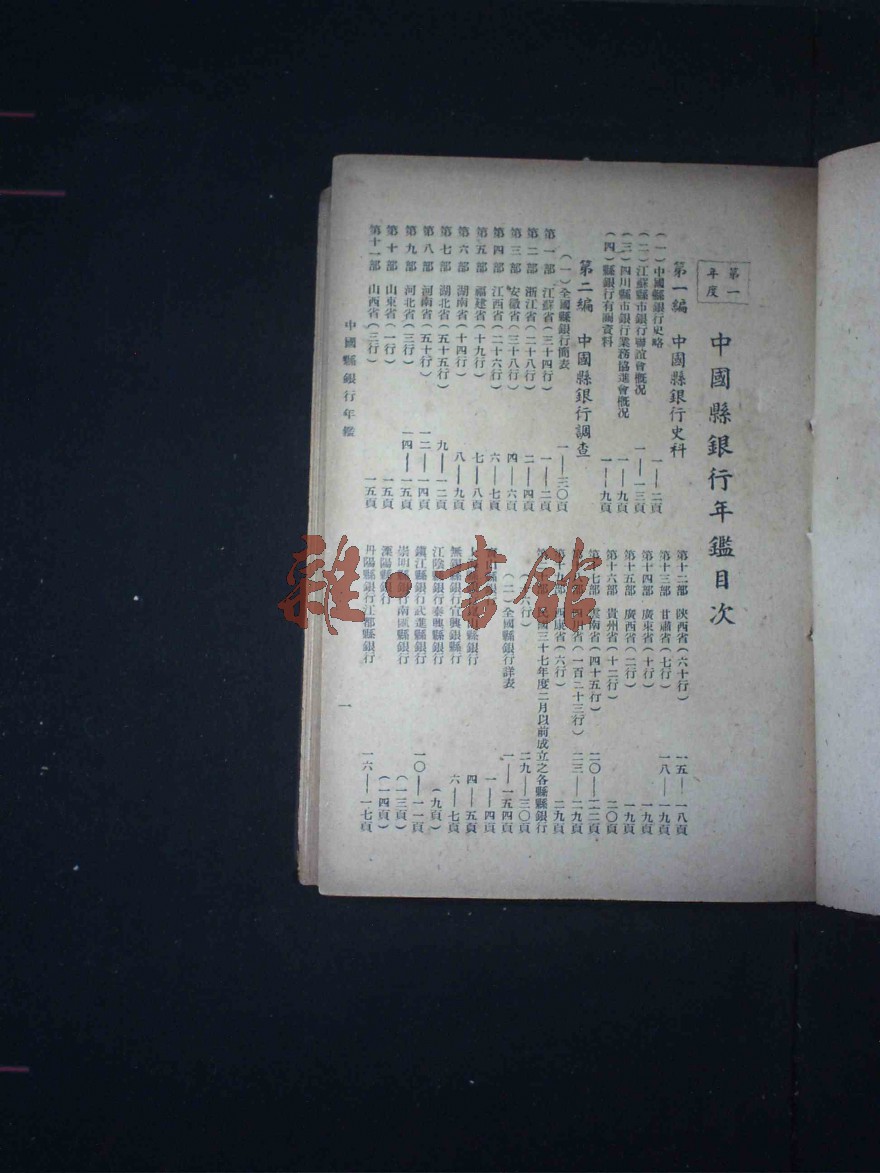 第一年度
中國縣銀行年鑑目次
第一編 中國縣銀行史科
(一)中國縣銀行史略 一——二頁
(二)江蘇縣市銀行聯誼會概況 一——一三頁
(三)四川縣市銀行業務協進會概況 一——九頁
(四)縣銀行有關資料 一——九頁
第二編 中國縣銀行調查
(一)全國縣銀行簡表 一——三〇頁
第一部 江蘇省(三十四行) 一——二頁
第二部 浙江省(二十八行) 二——四頁
第三部 安徽省(三十八行) 四——六頁
第四部 江西省(二十六行) 六——七頁
第五部 福建省(十九行) 七——八頁
第六部 湖南省(十四行) 八——九頁
第七部 湖北省(五十五行) 九——一二頁
第八部 河南省(五十行) 一二——一四頁
第九部 河北省(三行) 一四——一五頁
第十部 山東省(一行) 一五頁
第十一部 山西省(三行) 一五頁
第十二部 陝西省(六十行) 一五——一八頁
第十三部 甘肅省(七行) 一八——一九頁
第十四部 廣東省(十行) 一九頁
第十五部 廣西省(二行) 一九頁
第十六部 貴州省(十二行) 二〇頁
雲南省(四十五行) 二〇——二二頁
(一百二十三行) 二三——二九頁
西康省(六行) 二九頁
三十七年度二月以前成立之各縣縣銀行
二九——三〇頁
(二)全國縣銀行詳表 一——一五四頁
一——四頁
縣銀行 四——五頁
無錫縣銀行宜興縣銀行 六——七頁
江陰縣銀行泰興縣銀行 (九頁)
鎮江縣銀行武進縣銀行 一〇——一一頁
崇明縣銀行南匯縣銀行 (一三頁)
溧陽縣銀行 (一四頁)
丹陽縣銀行江都縣銀行 一六——一七頁
中國縣銀行年鑑
一
雜·書館